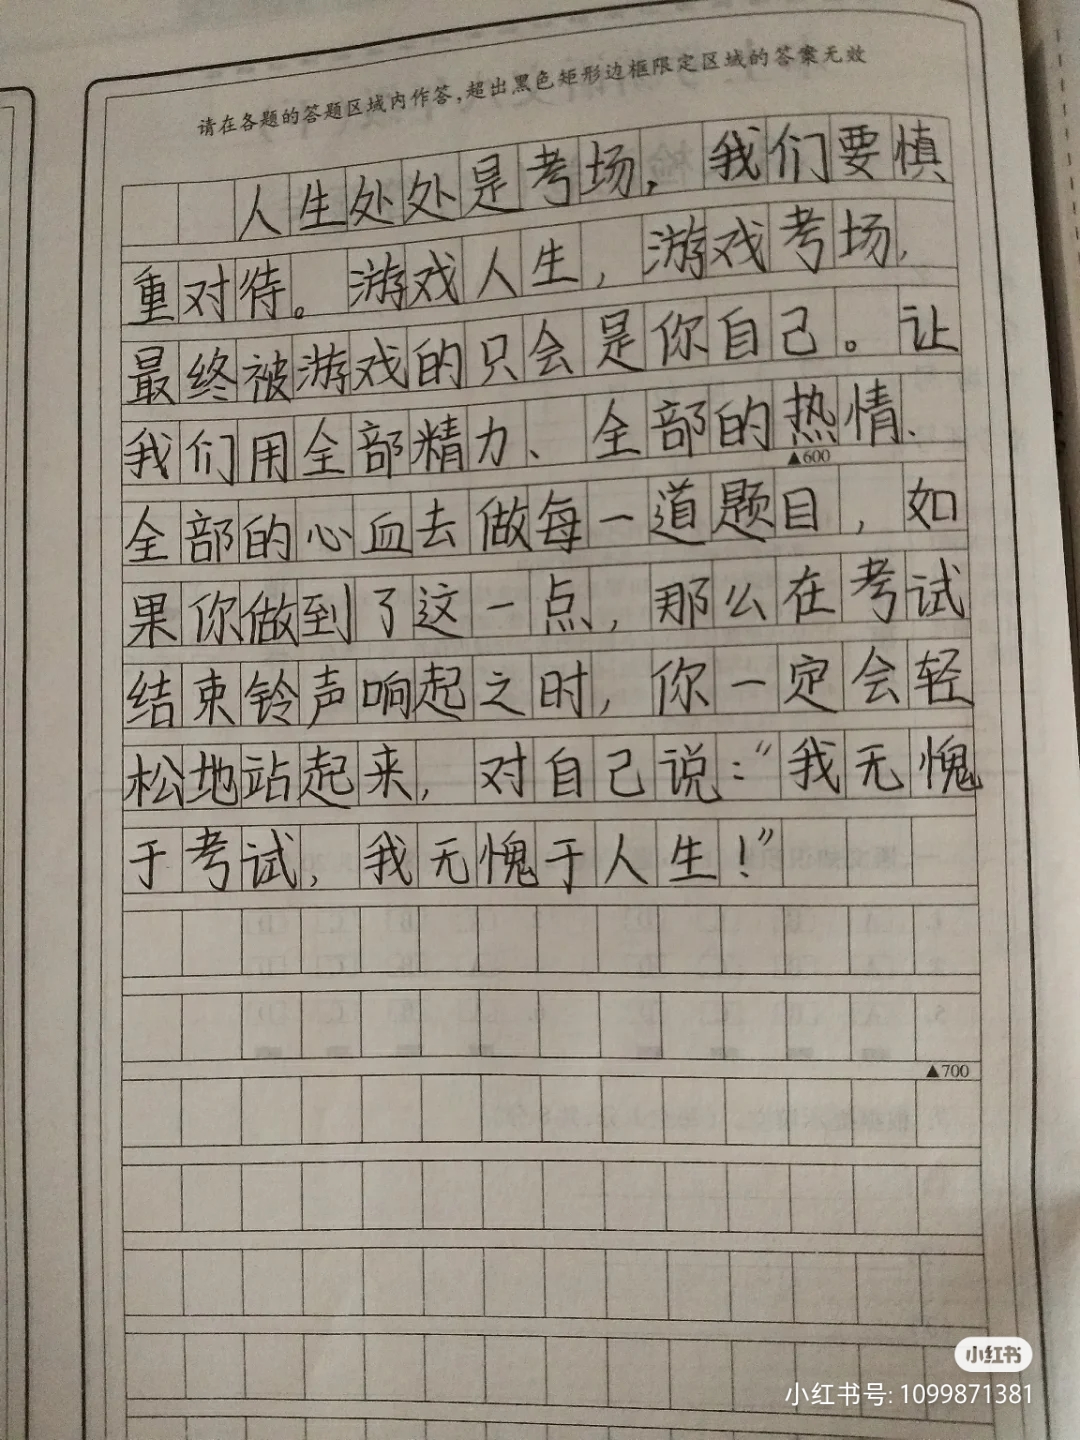 请在各题的答题区域内作答,超出黑色矩形边框限定区域的答案无效
人生处处是考场，我们要慎
重对待。游戏人生，游戏考场，
最终被游戏的只会是你自己。让
我们用全部精力、全部的热情、
▲600
全部的心血去做每一道题目，如
果你做到了这一点，那么在考试
结束铃声响起之时，你一定会轻
松地站起来，对自己说：“我无愧
于考试，我无愧于人生！”
▲700
小红书
小红书号: 1099871381